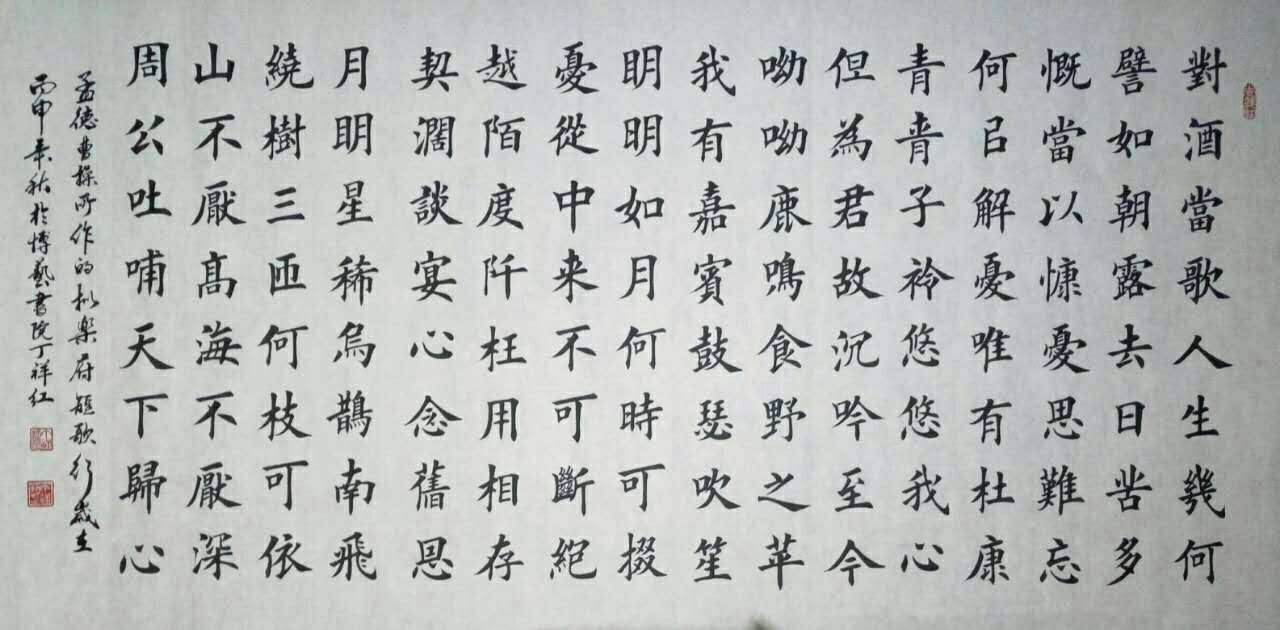 對酒當歌人生幾何
譬如朝露去日苦多
慨當以慷憂思難忘
何㠯解憂唯有杜康
青青子衿悠悠我心
但為君故沉吟至今
呦呦鹿鳴食野之苹
我有嘉賓鼓瑟吹笙
明明如月何時可掇
憂從中来不可斷絕
越陌度阡枉用相存
契濶談宴心念舊恩
月明星稀烏鵲南飛
繞樹三匝何枝可依
山不厭髙海不厭深
周公吐哺天下歸心
孟德曹操所作的拟楽府短歌行歲在
丙申年秋於博藝書院丁祥红